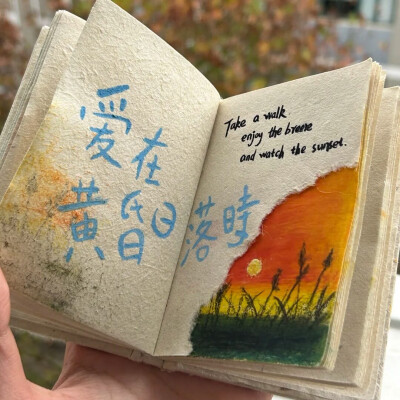 爱在
黄昏日落時
Take a walk
enjoy the breeze
and watch the sunset.